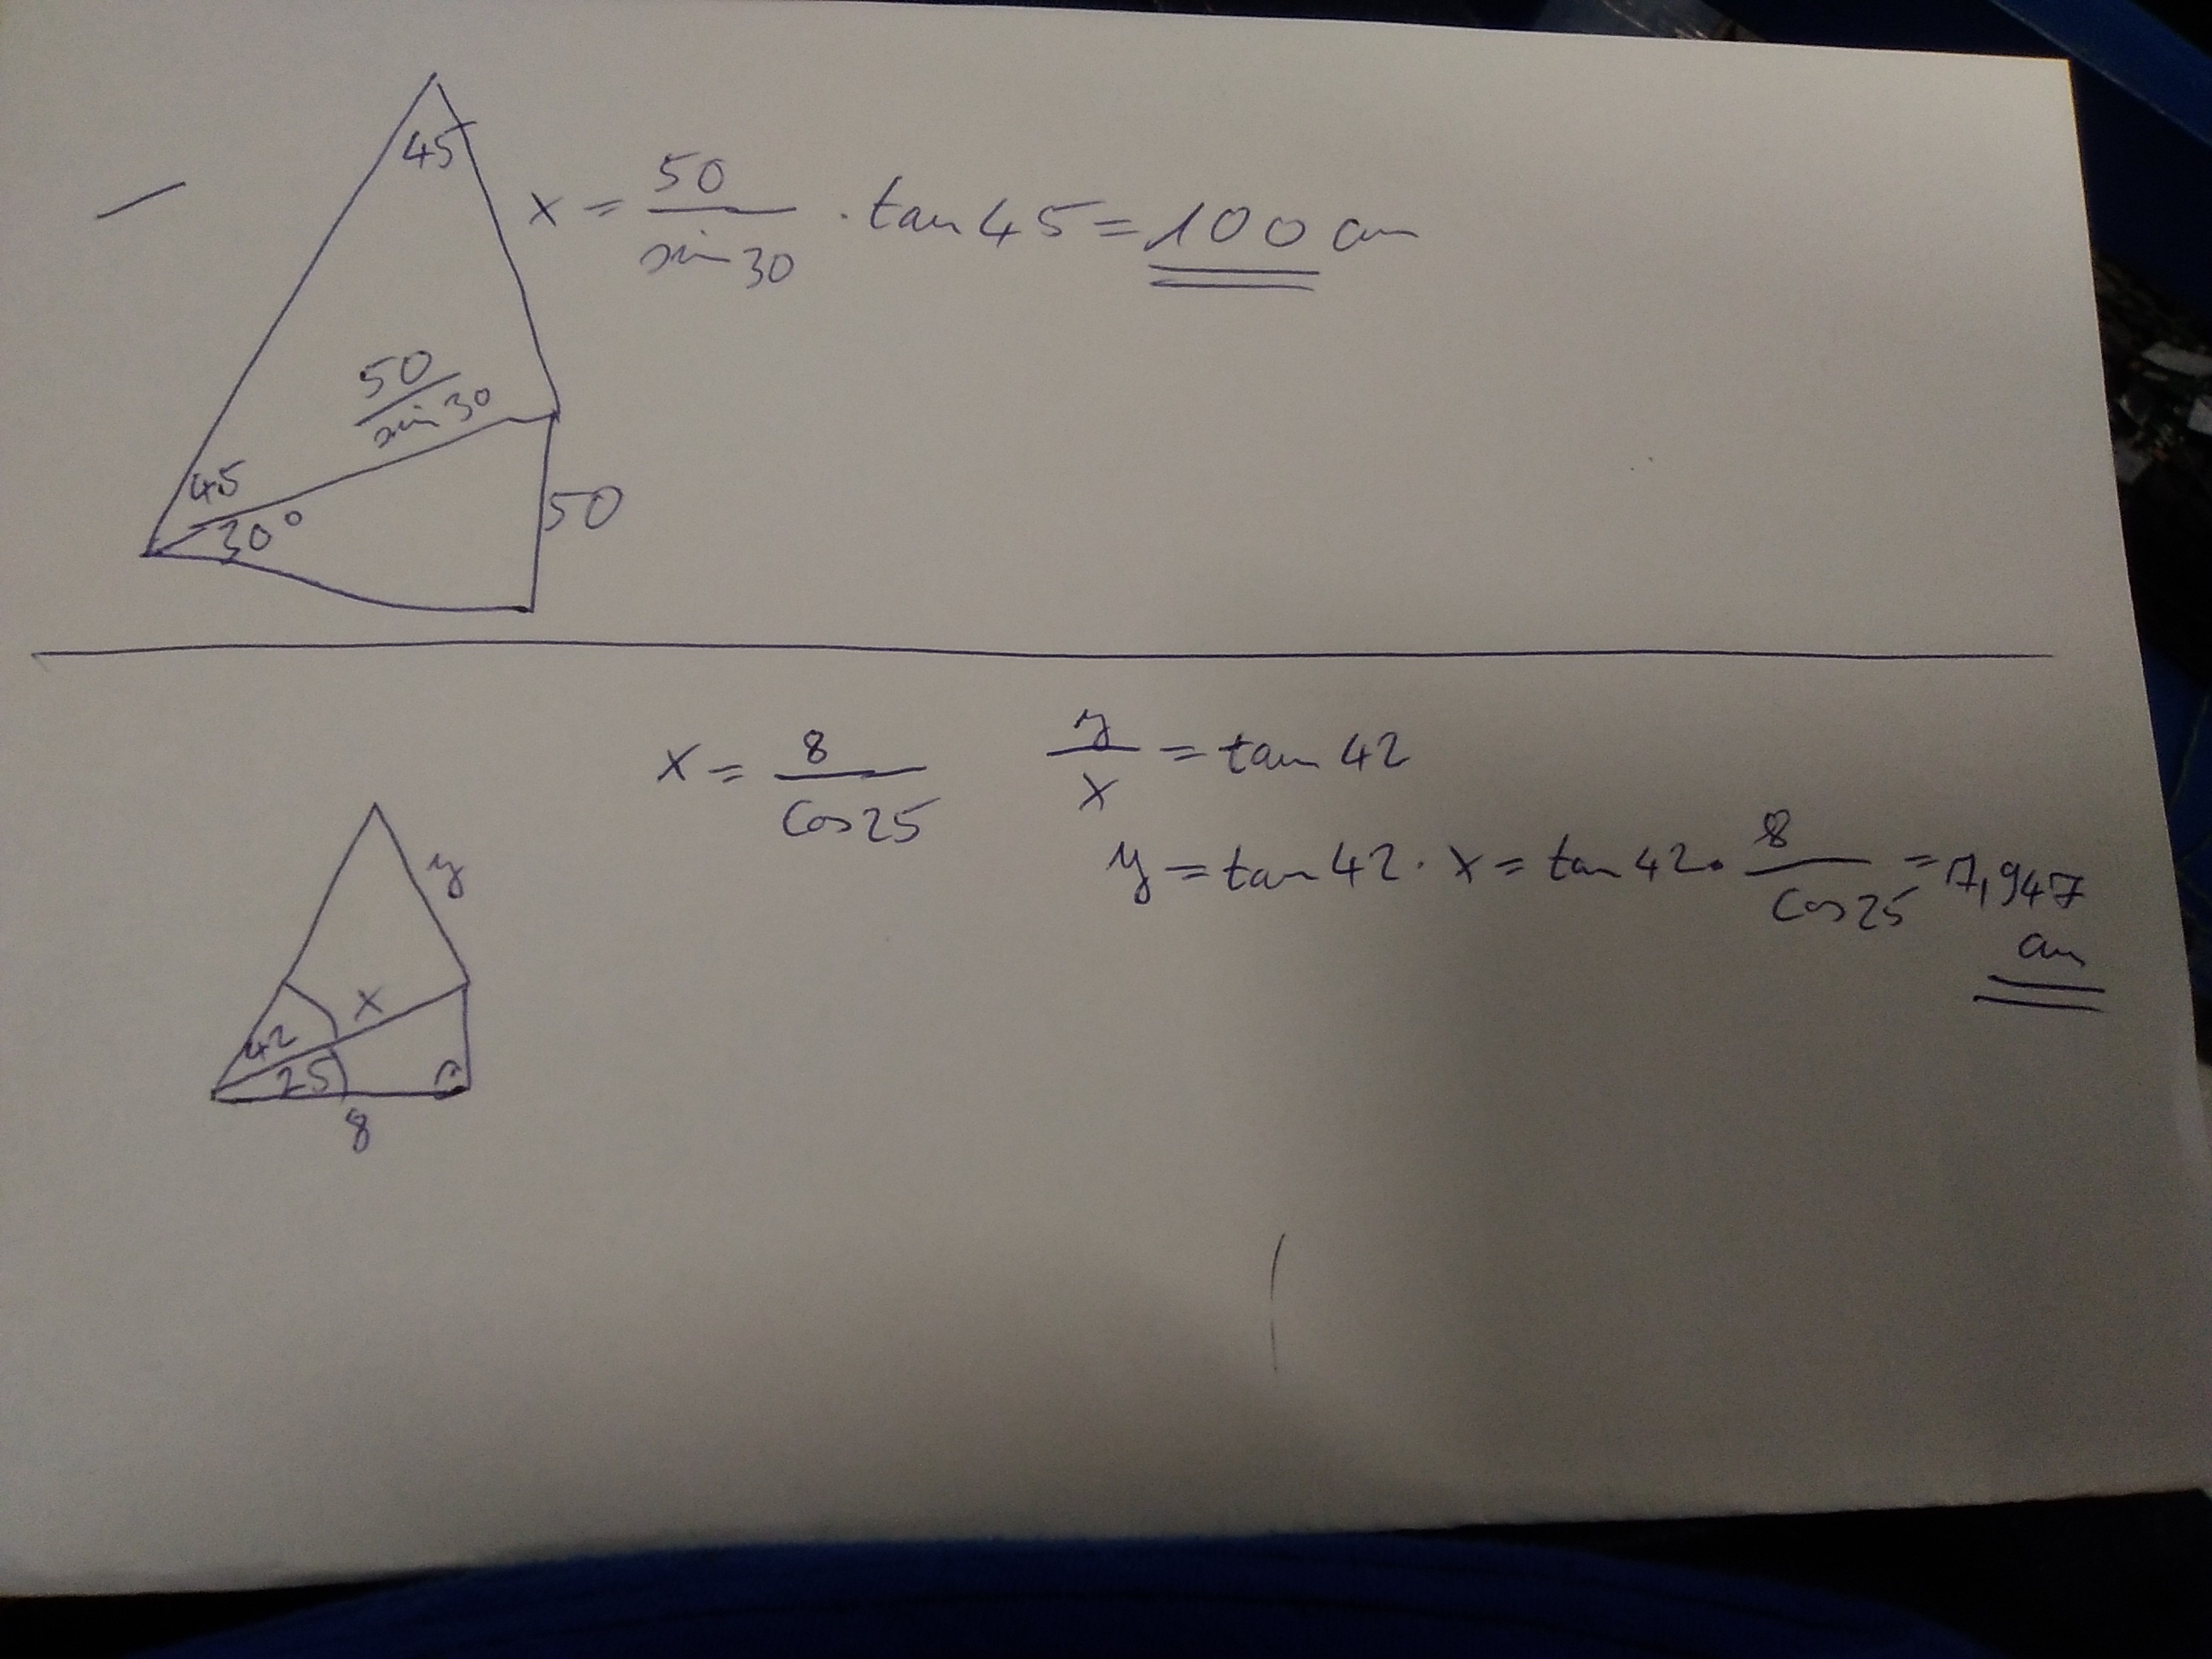 45
x = 50/sin 30 · tan 45 = 100 cm
50/sin 30
45
30°
50
x = 8/cos 25
y/x = tan 42
y = tan 42 · x = tan 42 · 8/cos 25 = 7,947
cm
y
x
42
25
8